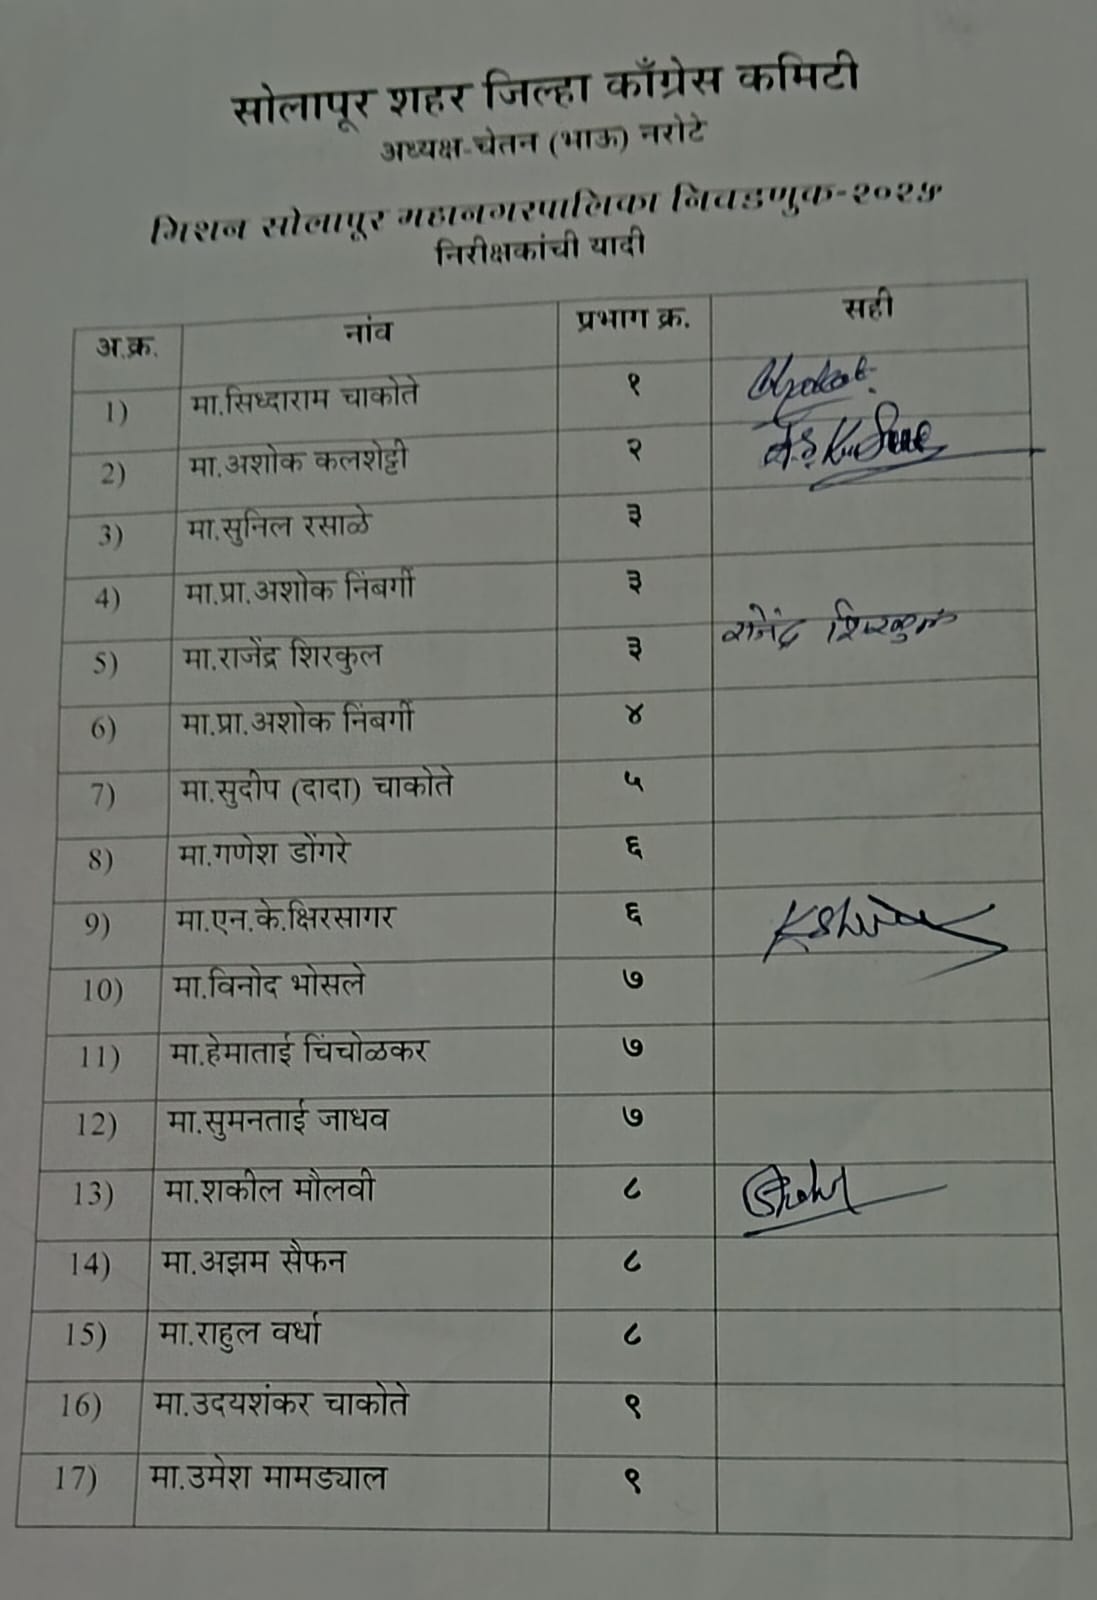 सोलापूर शहर जिल्हा काँग्रेस कमिटी
अध्यक्ष-चेतन (भाऊ) नरोटे
मिशन सोलापूर महानगरपालिका निवडणुक-२०२५
निरीक्षकांची यादी
अ.क्र. नांव प्रभाग क्र. सही
1) मा.सिध्दाराम चाकोते १
2) मा.अशोक कलशेट्टी २
3) मा.सुनिल रसाळे ३
4) मा.प्रा.अशोक निंबर्गी ३
5) मा.राजेंद्र शिरकुल ३ राजेंद्र शिरकुल
6) मा.प्रा.अशोक निंबर्गी ४
7) मा.सुदीप (दादा) चाकोते ५
8) मा.गणेश डोंगरे ६
9) मा.एन.के.क्षिरसागर ६
10) मा.विनोद भोसले ७
11) मा.हेमाताई चिंचोळकर ७
12) मा.सुमनताई जाधव ७
13) मा.शकील मौलवी ८
14) मा.अझम सैफन ८
15) मा.राहुल वर्धा ८
16) मा.उदयशंकर चाकोते ९
17) मा.उमेश मामड्याल ९